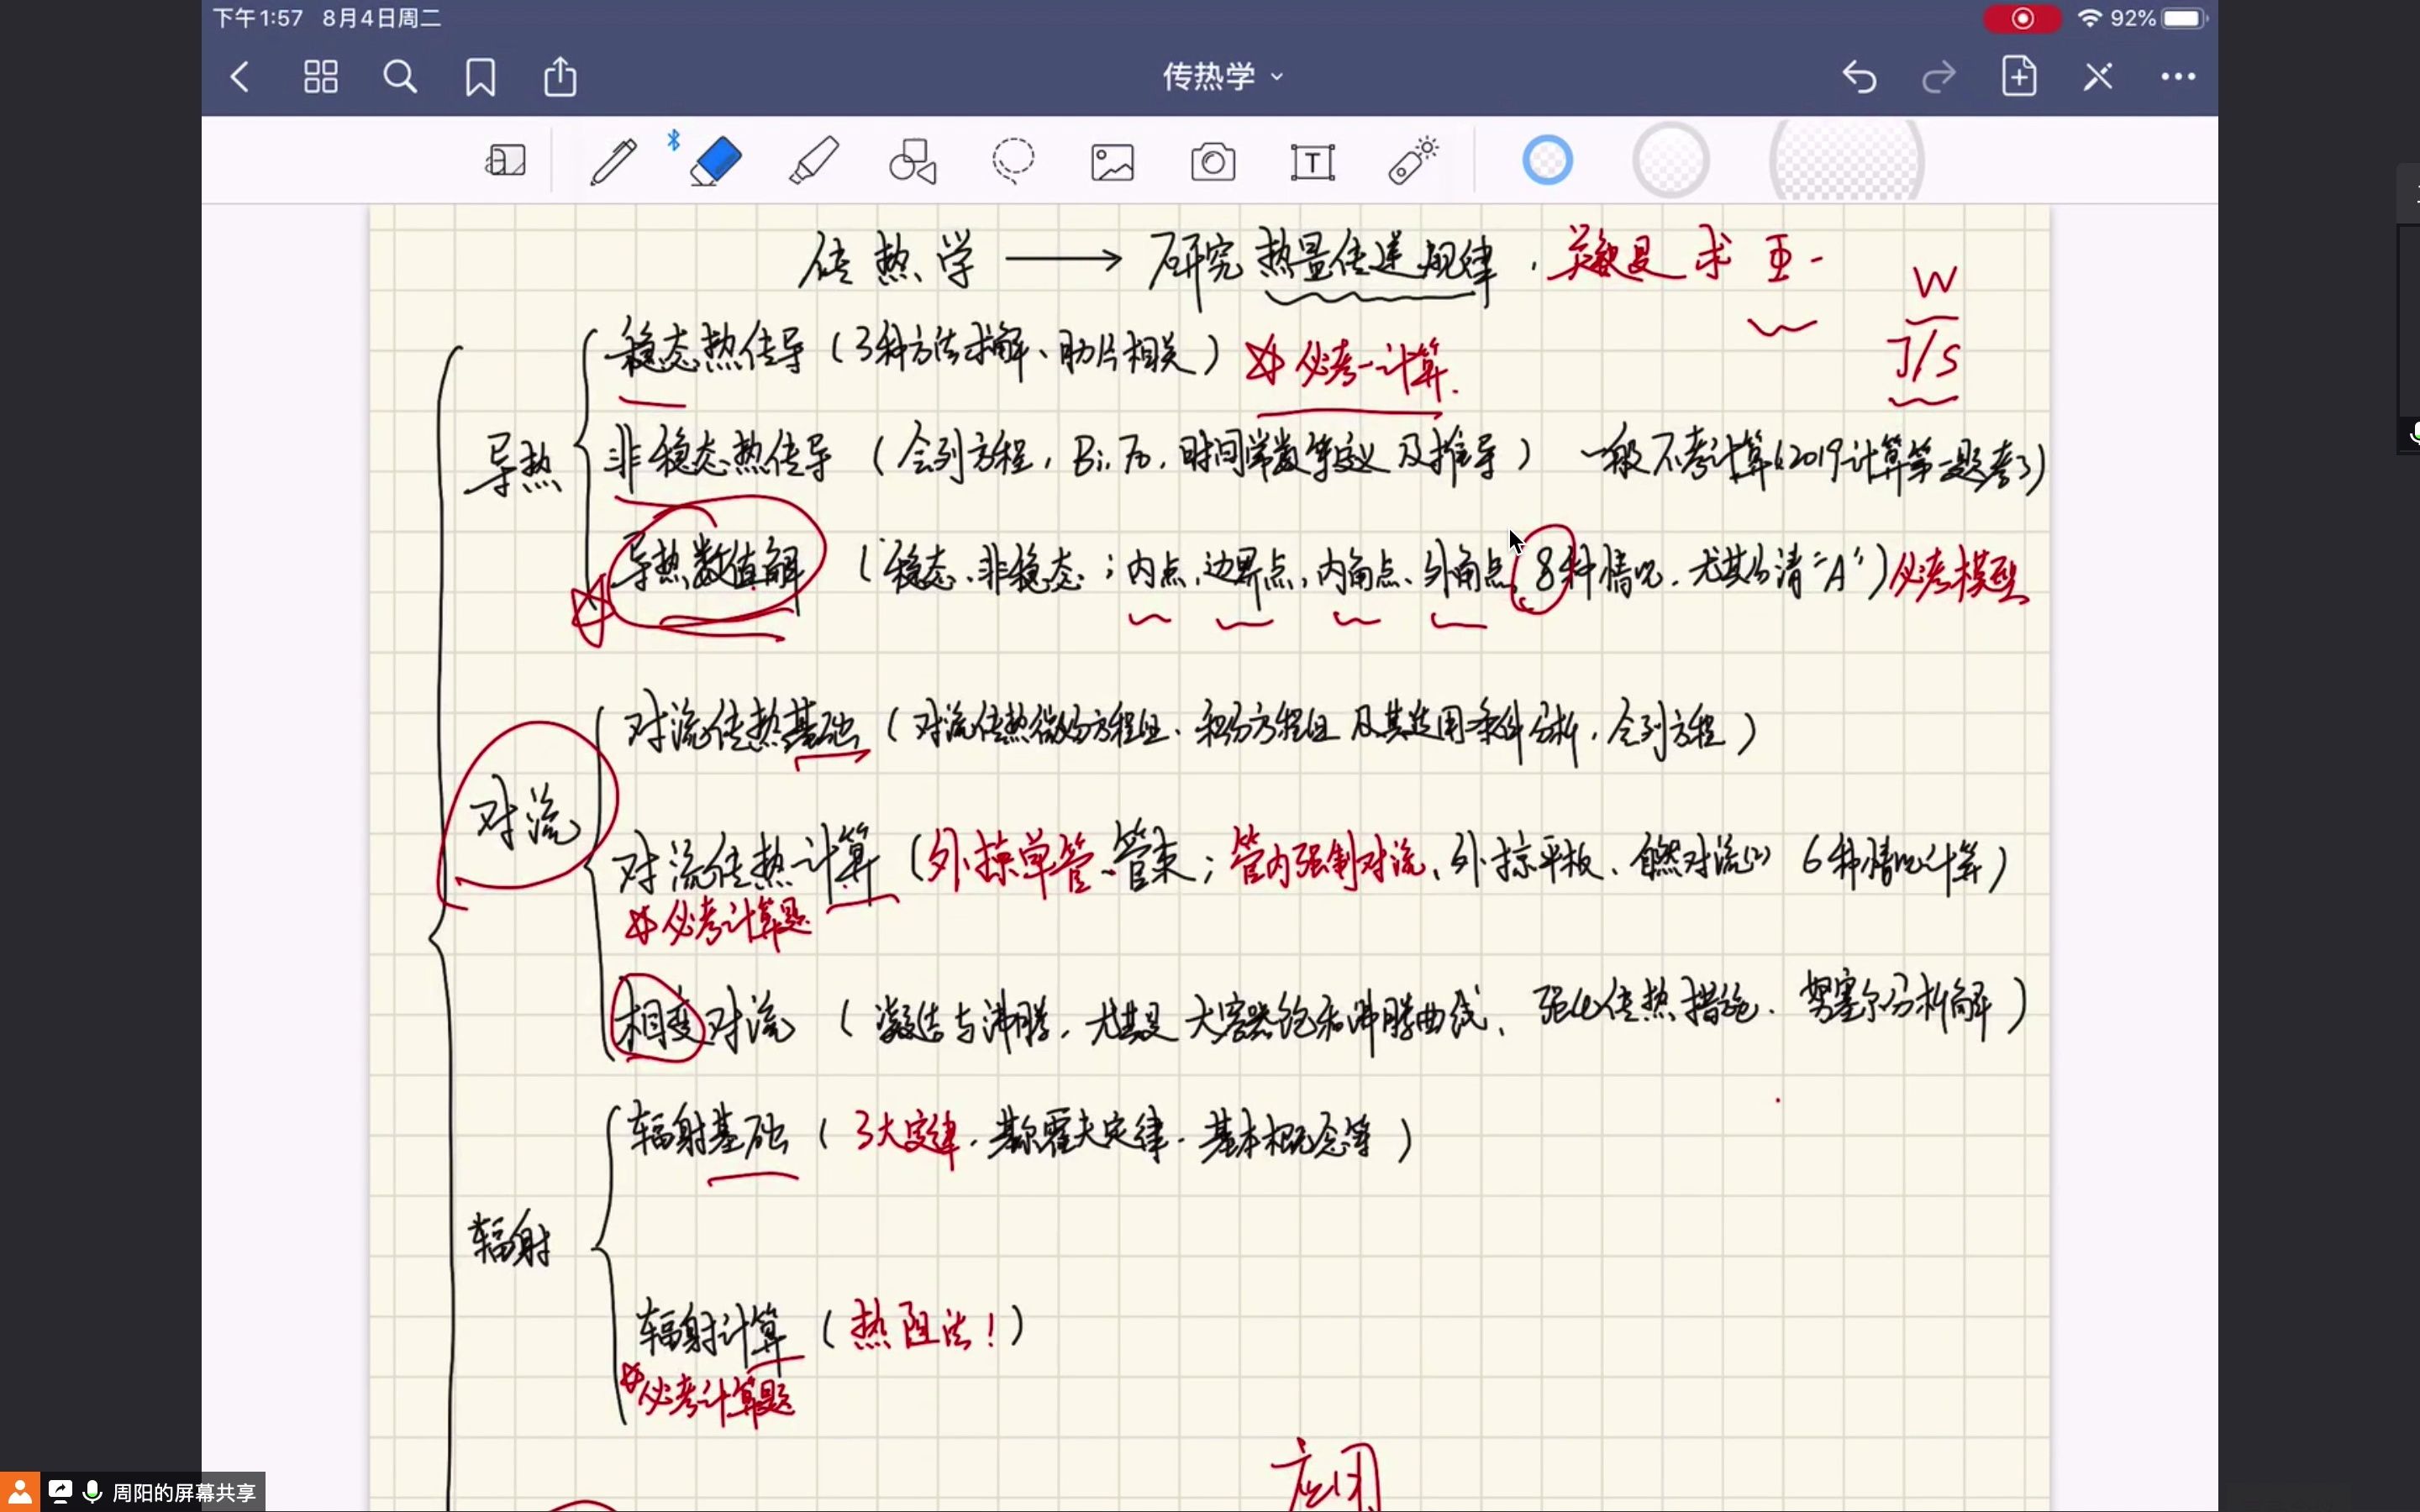 下午1:57 8月4日周二
92%
传热学
T
传热学 → 研究热量传递规律,关键是求 Φ.
W
J/S
稳态热传导(3种方法求解、肋片相关)必考计算.
导热
非稳态热传导(会列方程,Bi,Fo,时间常数等定义及推导)一般不考计算(2019计算第一题考了)
导热数值解(稳态、非稳态;内点,边界点,内角点、外角点,8种情况.尤其分清“A”)必考模型
对流传热基础(对流传热微分方程组、积分方程组及其适用条件分析,会列方程)
对流
对流传热计算(外掠单管、管束;管内强制对流、外掠平板、自然对流(2) 6种情况计算)
必考计算题
相变对流(凝结与沸腾,尤其是大容器饱和沸腾曲线、强化传热措施.努塞尔分析解)
辐射基础(3大定律.基尔霍夫定律.基本概念等)
辐射
辐射计算(热阻法!)
必考计算题
应用
周阳的屏幕共享